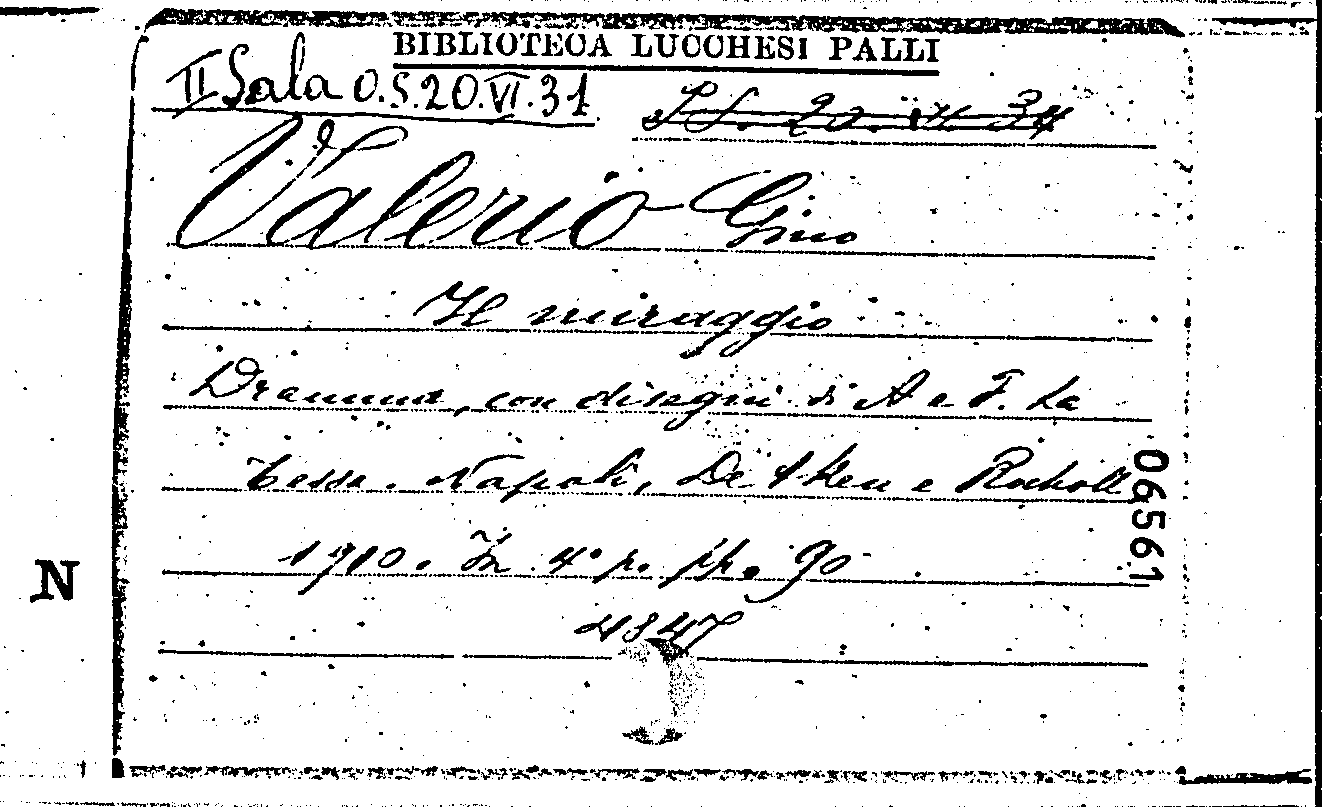 BIBLIOTECA LUCCHESI PALLI
II Sala O.S.20.VI.31
S.S. 20. 34
Valerio Gino
Il miraggio
Dramma, con disegni di A e F. La
Bessa. Napoli, De e Rocholl
1910. In 4° p. pp. 90
4347
06561
N